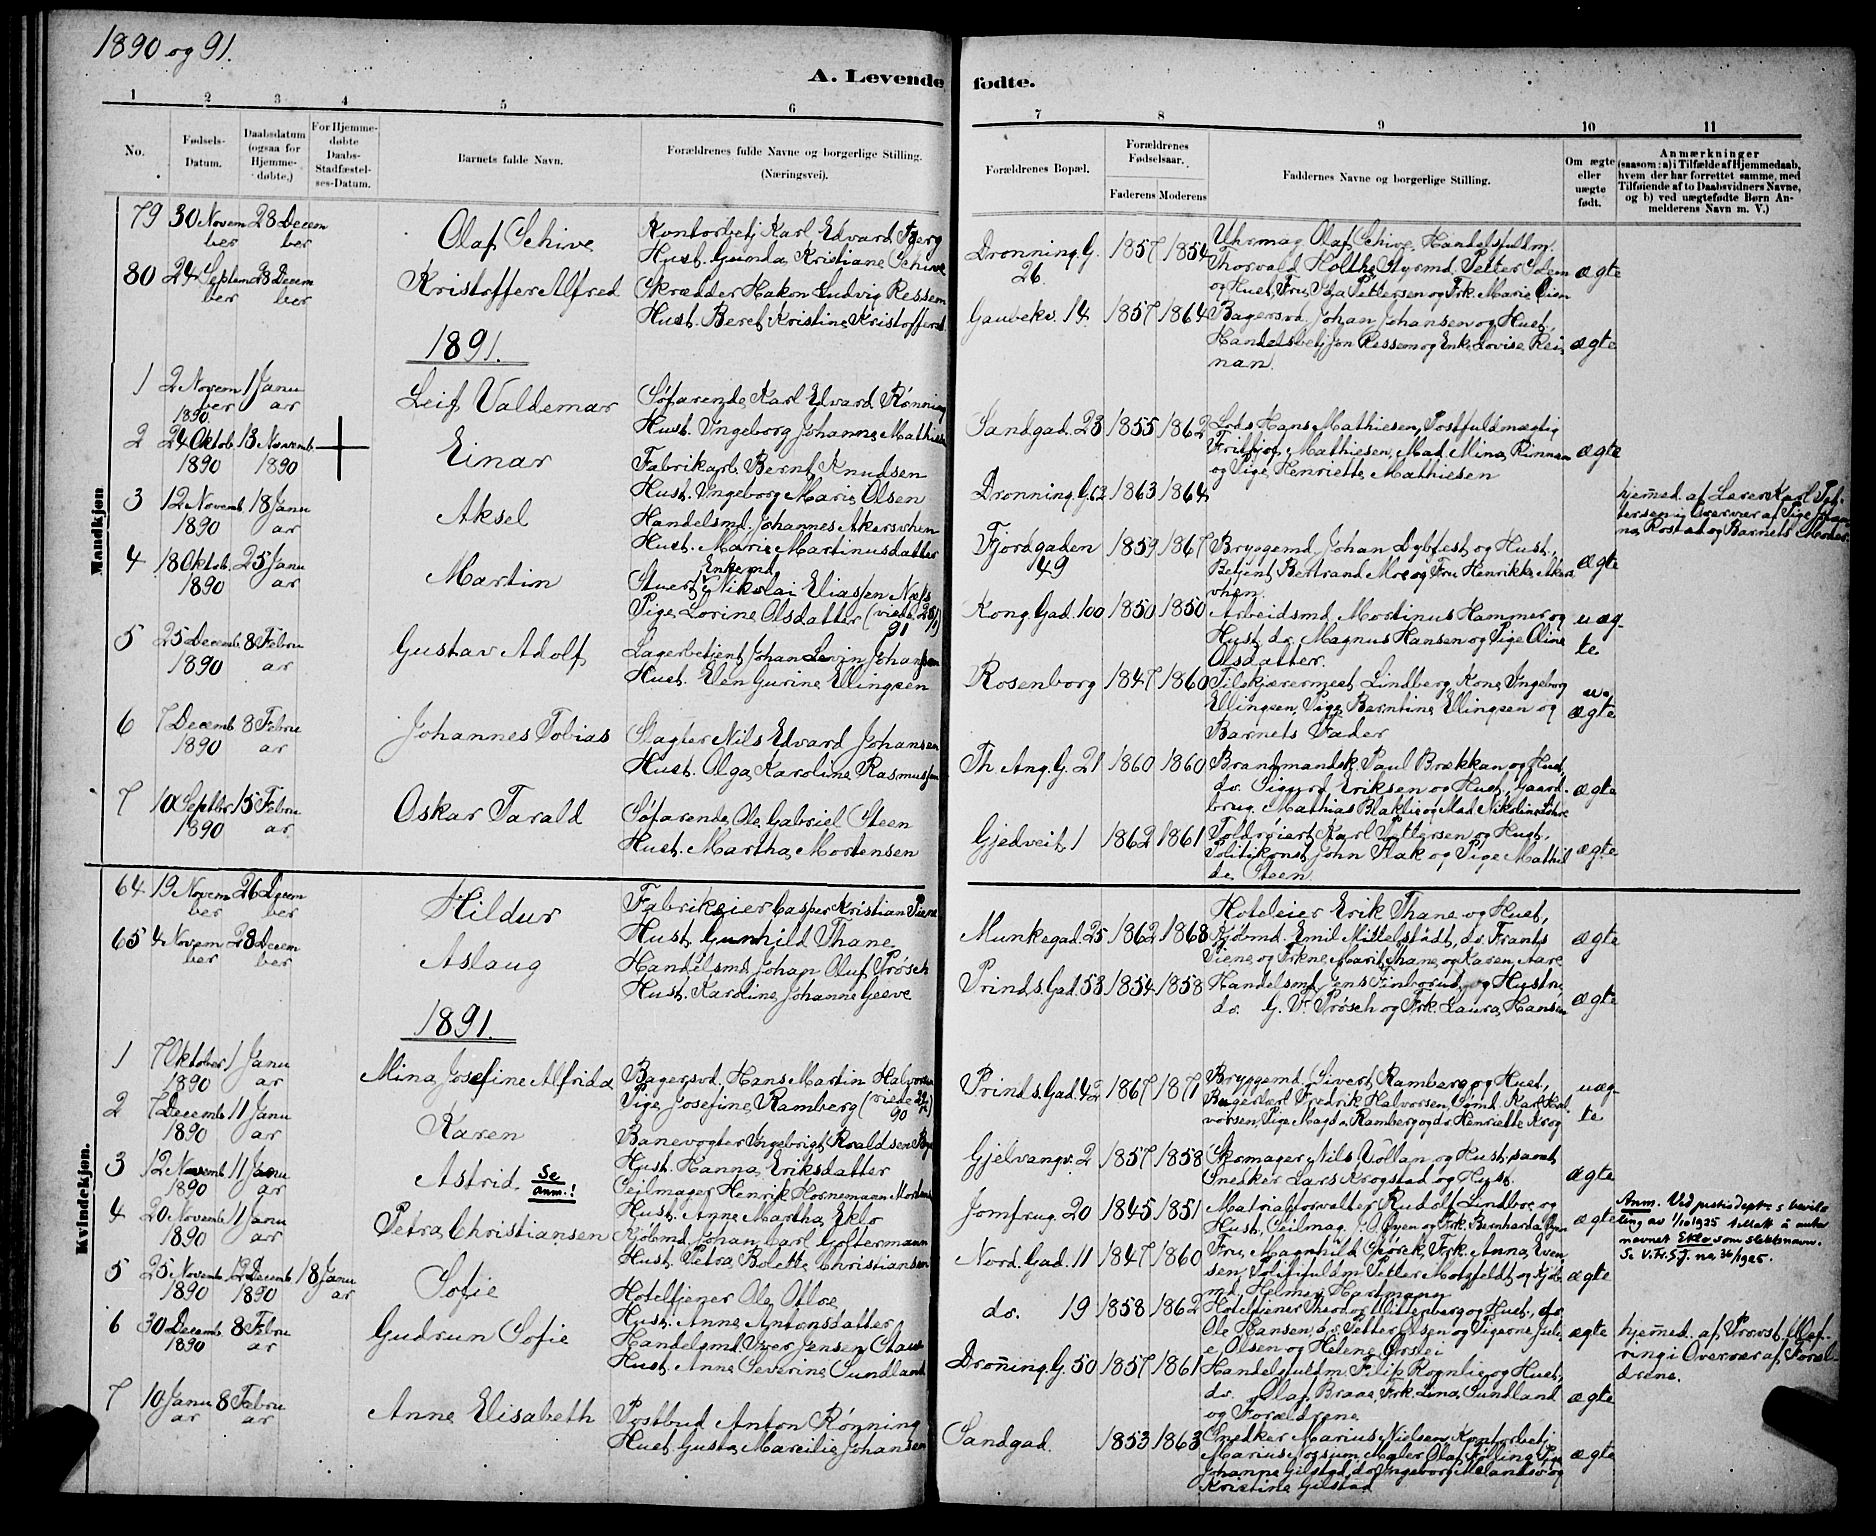 1890 og 91.
A. Levende fødte.
1 2 3 4 5 6 7 8 9 10 11
No.
Fødsels-Datum.
Daabsdatum (ogsaa for Hjemme-døbte.)
For Hjemme-døbte Daabs-Stadfæstel-ses-Datum.
Barnets fulde Navn.
Forældrenes fulde Navne og borgerlige Stilling. (Næringsvei).
Forældrenes Bopæl.
Forældrenes Fødselsaar.
Faderens Moderens
Faddernes Navne og borgerlige Stilling.
Om ægte eller uægte født.
Anmærkninger
(saasom: a) i Tilfælde af Hjemmedaab,
hvem der har forrettet samme, med
Tilføiende af to Daabsvidners Navne,
og b) ved uægtefødte Børn An-
melderens Navn m. V.)
Mandkjøn
79 30 November 28 December Olaf Schive
Kontorbetj Karl Edvard Berg
Hust. Gunda Kristiane Schive
Dronning. G. 26 1857 1854
Uhrmag. Olaf Schive, Handelsfuldm.
Thorvald Holthe, Styrmd. Petter Solem
og Hust, Fru Ida Pettersen og Frk. Marie Oien
ægte
80 24 September 28 December Kristoffer Alfred
Skrædder Hakon Ludvig Ressem
Hust. Beret Kristine Kristoffersd
Gaubekv. 14. 1857 1864
Bagersvd. Johan Johansen og Hust,
Handelsbetj Jon Ressem og Enke Lovise Rei
nan.
ægte
1891.
1 2 November 1890 1 Januar Leif Valdemar
Søfarende Karl Edvard Rønning
Hust. Ingeborg Johanne Mathisen
Sandgad. 23 1855 1862
Lods Hans Mathiesen, Postfuldmægtig
Fritjog Mathiesen, Mad. Mina Rinnan
og Pige Henriette Mathiesen
ægte
2 24 Oktob. 1890 13 Novemb 1890 Einar
Fabrikarb. Bernt Knudsen
Hust. Ingeborg Marie Olsen
Dronning. G. 63 1863 1864
hjemed. af Lærer Karl Pet-
tersen i Overvær af Pige
na Rostad og Barnets Moder.
3 12 Novemb 1890 18 Januar Aksel
Handelsmd. Johannes Akersvhen
Hust. Marie Martinusdatter
Fjordgaden 49 1859 1867
Bryggemd. Johan Dybfest og Hust.,
Betjent Bertrand Moe og Fru Henrikke Akers
vhen.
ægte
4 18 Oktob. 1890 25 Januar Martin
Enkemd.
Stuert Nikolai Eliassen Næss
Pige Lorine Olsdatter (viede 25/1 91)
Kong. Gad. 100 1850 1850
Arbeidsmd Martinus Hammer og
Hust, do Magnus Hansen og Pige Oline
Olsdatter.
uæg-
te
5 25 Decemb 1890 8 Februar Gustav Adolf
Lagerbetjent Johan Levin Johansen
Hust. Elen Gurine Ellingsen
Rosenborg 1847 1860
Filskjærermest Lindberg, Kone Ingeborg
Ellingsen, Pige Berntine Ellingsen og
Barnets Fader
ægte
6 7 Decemb 1890 8 Februar Johannes Tobias
Slagter Nils Edvard Johansen
Hust. Olga Karoline Rasmussen
Th. Ang. G. 21 1860 1860
Brandmandsk. Paul Brækkan og Hust,
do. Sigurd Eriksen og Hust, Gaard-
brug. Mathias Blakli og Mad Nikoline
ægte
7 10 Septbr 1890 15 Februar Oskar Tarald
Søfarende Ole Gabriel Steen
Hust. Martha Mortensen
Gjedveit 1 1862 1861
Toldrøiert Karl Pettersen og Hust.
Politikonst John Flak og Pige Mathil
de Steen
ægte
Kvindekjøn.
64 19 November 26 December Hildur
Fabrikeier Casper Kristian Piene
Hust Gunhild Thane
Munkegad. 25 1862 1868
Hoteleier Erik Thane og Hust,
Kjøbmd. Emil Mittelstadt, do. Frants
Piene og Frkne Marit Thane og Karen Aare
ægte
65 4 November 28 December Aslaug
Handelsmd Johan Oluf Prøsch
Hust. Karoline Johanne Geeve
Prinds. Gad. 53 1854 1858
Handelsmd Jens Finborud og Hustru
do. G. V. Prøsch og Frk. Laura Hansen
ægte
1891.
1 7 Oktober 1890 1 Januar Mina Josefine Alfrida
Bagersvd. Hans Martin Halvorsen
Pige Josefine Ramberg (viede 90)
Prinds. Gad. 42 1867 1871
Bryggemd. Sivert Ramberg og Hust,
Bagerlærl Fredrik Halvorsen, Sømd. Karl Hal
vorsen, Pige Magda Ramberg og do Henriette Krog
uæg-
te
2 7 Decemb 1890 11 Januar Karen
Banevogter Ingebrigt Roaldsen
Hust. Hanna Eriksdatter
Gjelvangv. 2 1857 1858
Skomager Nils Vollan og Hust. samt
Snedker Lars Krogstad og Hust.
ægte
3 12 Novemb 1890 11 Januar Astrid. Se anm.!
Seilmager Henrik Hornemann Mortensen
Hust. Anne Martha Eklo
Jomfrug. 20 1845 1851
Matrialforvalter Rudolf Lindboe og
Hust, Seilmag. J. Øyen og Frk. Bernharda Øyen
ægte
Anm. Ved justisdept.s bevil-
ling av 1/10 1925 tillatt å anta
navnet Eklo som slektsnavn.
Se V. Fr. S. J. no. 36/1925.
4 20 Novemb 1890 11 Januar Petra Christiansen
Kjøbmd. Johan Carl Goltermann
Hust. Petra Bolette Christiansen
Nord. Gad. 11 1847 1860
Fru Magnhild Chørek, Frk. Anna Even
sen, Politifuldm Petter Motzfeldt og Kjøb-
md. Helmer Hartmann
ægte
5 25 Novemb 1890 12 Decemb 1890 18 Januar Sofie
Hoteltjener Ole Olloe
Hust. Anne Antonsdatter
do. 19 1858 1862
Hoteltjener Theodor Wittenberg og Hust, do.
Ole Hansen, do. Petter Olsen og Pigerne Juli
e Olsen og Helene Orslei
ægte
hjemed. af Provst Møf-
ring i Overvær af Foræl-
drene.
6 30 Decemb 1890 8 Februar Gudrun Sofie
Handelsmd Iver Jensen Staus
Hust. Anne Severine Sundland
Dronning. G. 50 1857 1861
Handelsfuldm. Filip Rognlie og Hust,
do. Olaf Braae, Frk. Lina Sundland
og Forældrene
ægte
7 10 Januar 8 Februar Anne Elisabeth
Postbud Anton Rønning
Hust. Gusta Mareilie Johansen
Sandgad. 1853 1863
Snedker Marius Nielsen, Kontorbetj
Marius Mogsum, Maler Olaf Kolling, Pige
Johanne Gilstad, do Ingeborg Melandsø og
Kristine Gilstad
ægte